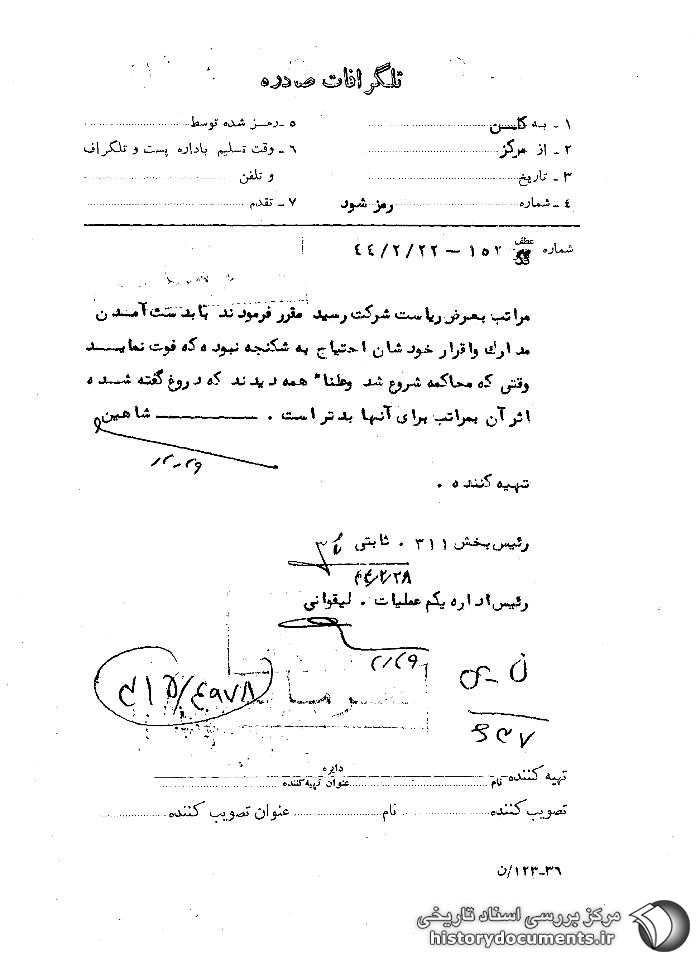 تلگرافات صادره
۱ - به کلسن
۲ - از مرکز
۳ - تاریخ
۴ - شماره رمز شود
۵ - رمز شده توسط
۶ - وقت تسلیم باداره پست و تلگراف
و تلفن
۷ - تقدم
شماره عطف ۱۵۲ - ۴۴/۲/۲۲
مراتب بعرض ریاست شرکت رسید مقرر فرمودند با بدست آمدن
مدارك و اقرار خودشان احتیاج به شکنجه نبوده که فوت نماید
وقتی که محاکمه شروع شد وعلنا" همه دیدند که دروغ گفته شده
اثر آن بمراتب برای آنها بدتر است . شاهین
۲٫۲۹
تهیه کننده .
رئیس بخش ۳۱۱ . ثابتی
۴۴/۲/۲۸
رئیس اداره یکم عملیات . لیقوانی
۲٫۲۹
تهیه کننده نام دایره عنوان تهیه کننده
تصویب کننده نام عنوان تصویب کننده
۱۲۳-۳۶/ن
مرکز بررسی اسناد تاریخی
historydocuments.ir